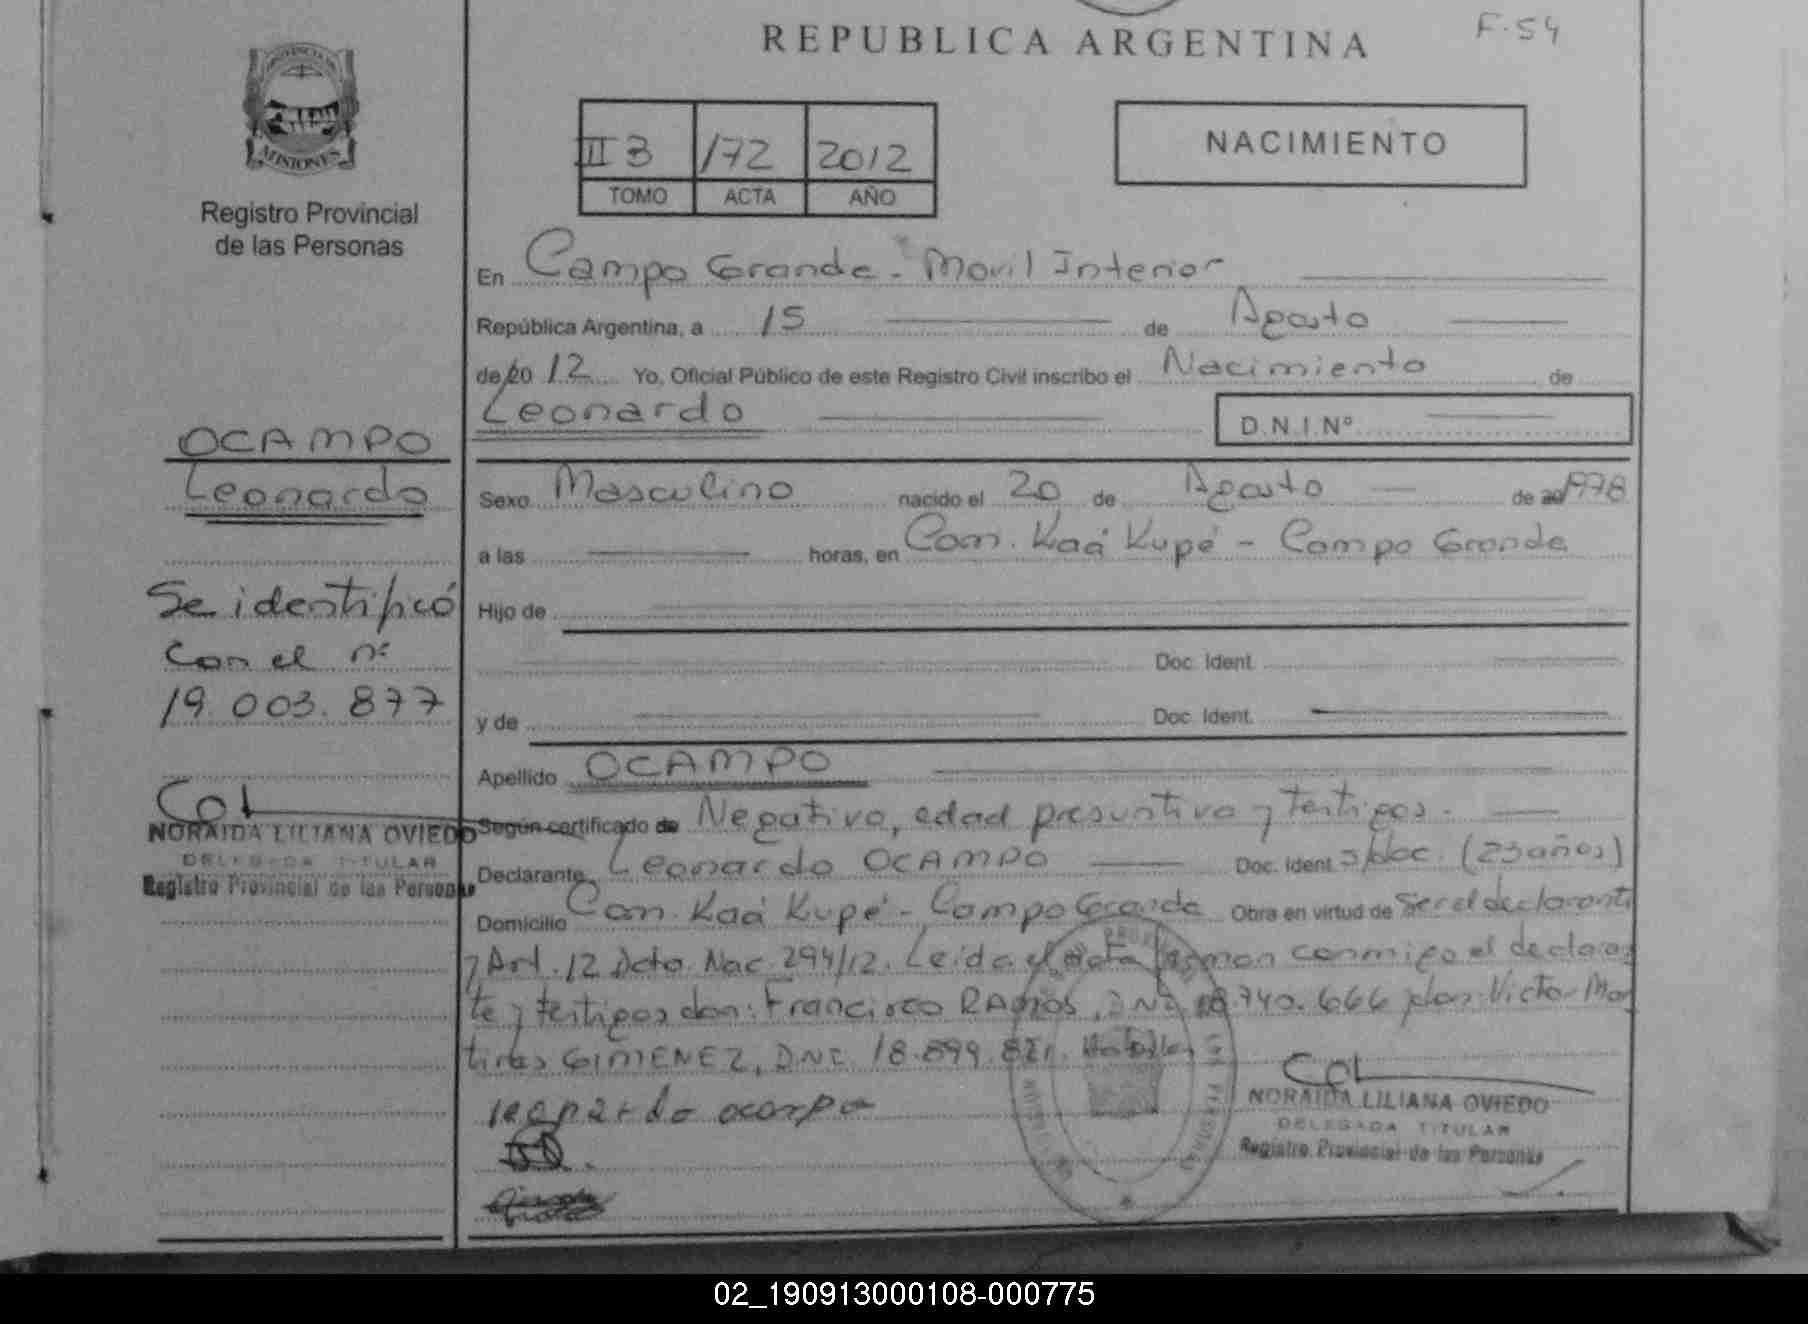 F. 54
REPUBLICA ARGENTINA
MISIONES
II 3 172 2012
TOMO ACTA AÑO
NACIMIENTO
Registro Provincial
de las Personas
En Campo Grande - Movil Interior
República Argentina, a 15 de Agosto
de 20 12 Yo, Oficial Público de este Registro Civil inscribo el Nacimiento de
Leonardo D.N.I.Nº
OCAMPO
Leonardo
Se identificó
con el nº
19.003.877
NORAIDA LILIANA OVIEDO
DELEGADA TITULAR
Registro Provincial de las Personas
Sexo Masculino nacido el 20 de Agosto de 20 1978
a las horas, en Com. Kaá Kupé - Campo Grande
Hijo de
Doc. Ident.
y de Doc. Ident.
Apellido OCAMPO
Según certificado de Negativo, edad presuntiva y testigos.
Declarante Leonardo OCAMPO Doc. Ident. s/doc. (23 años)
Domicilio Com. Kaá Kupé - Campo Grande Obra en virtud de Ser el declarant
y Art. 12 Dcto. Nac. 294/12. Leída el acta firman conmigo el declaran
te y testigos don: Francisco RAMOS, DNI 18.740.666 y don: Victor Mar
tires GIMENEZ, DNI. 18.899.821.
leonardo ocampo
NORAIDA LILIANA OVIEDO
DELEGADA TITULAR
Registro Provincial de las Personas
02_190913000108-000775